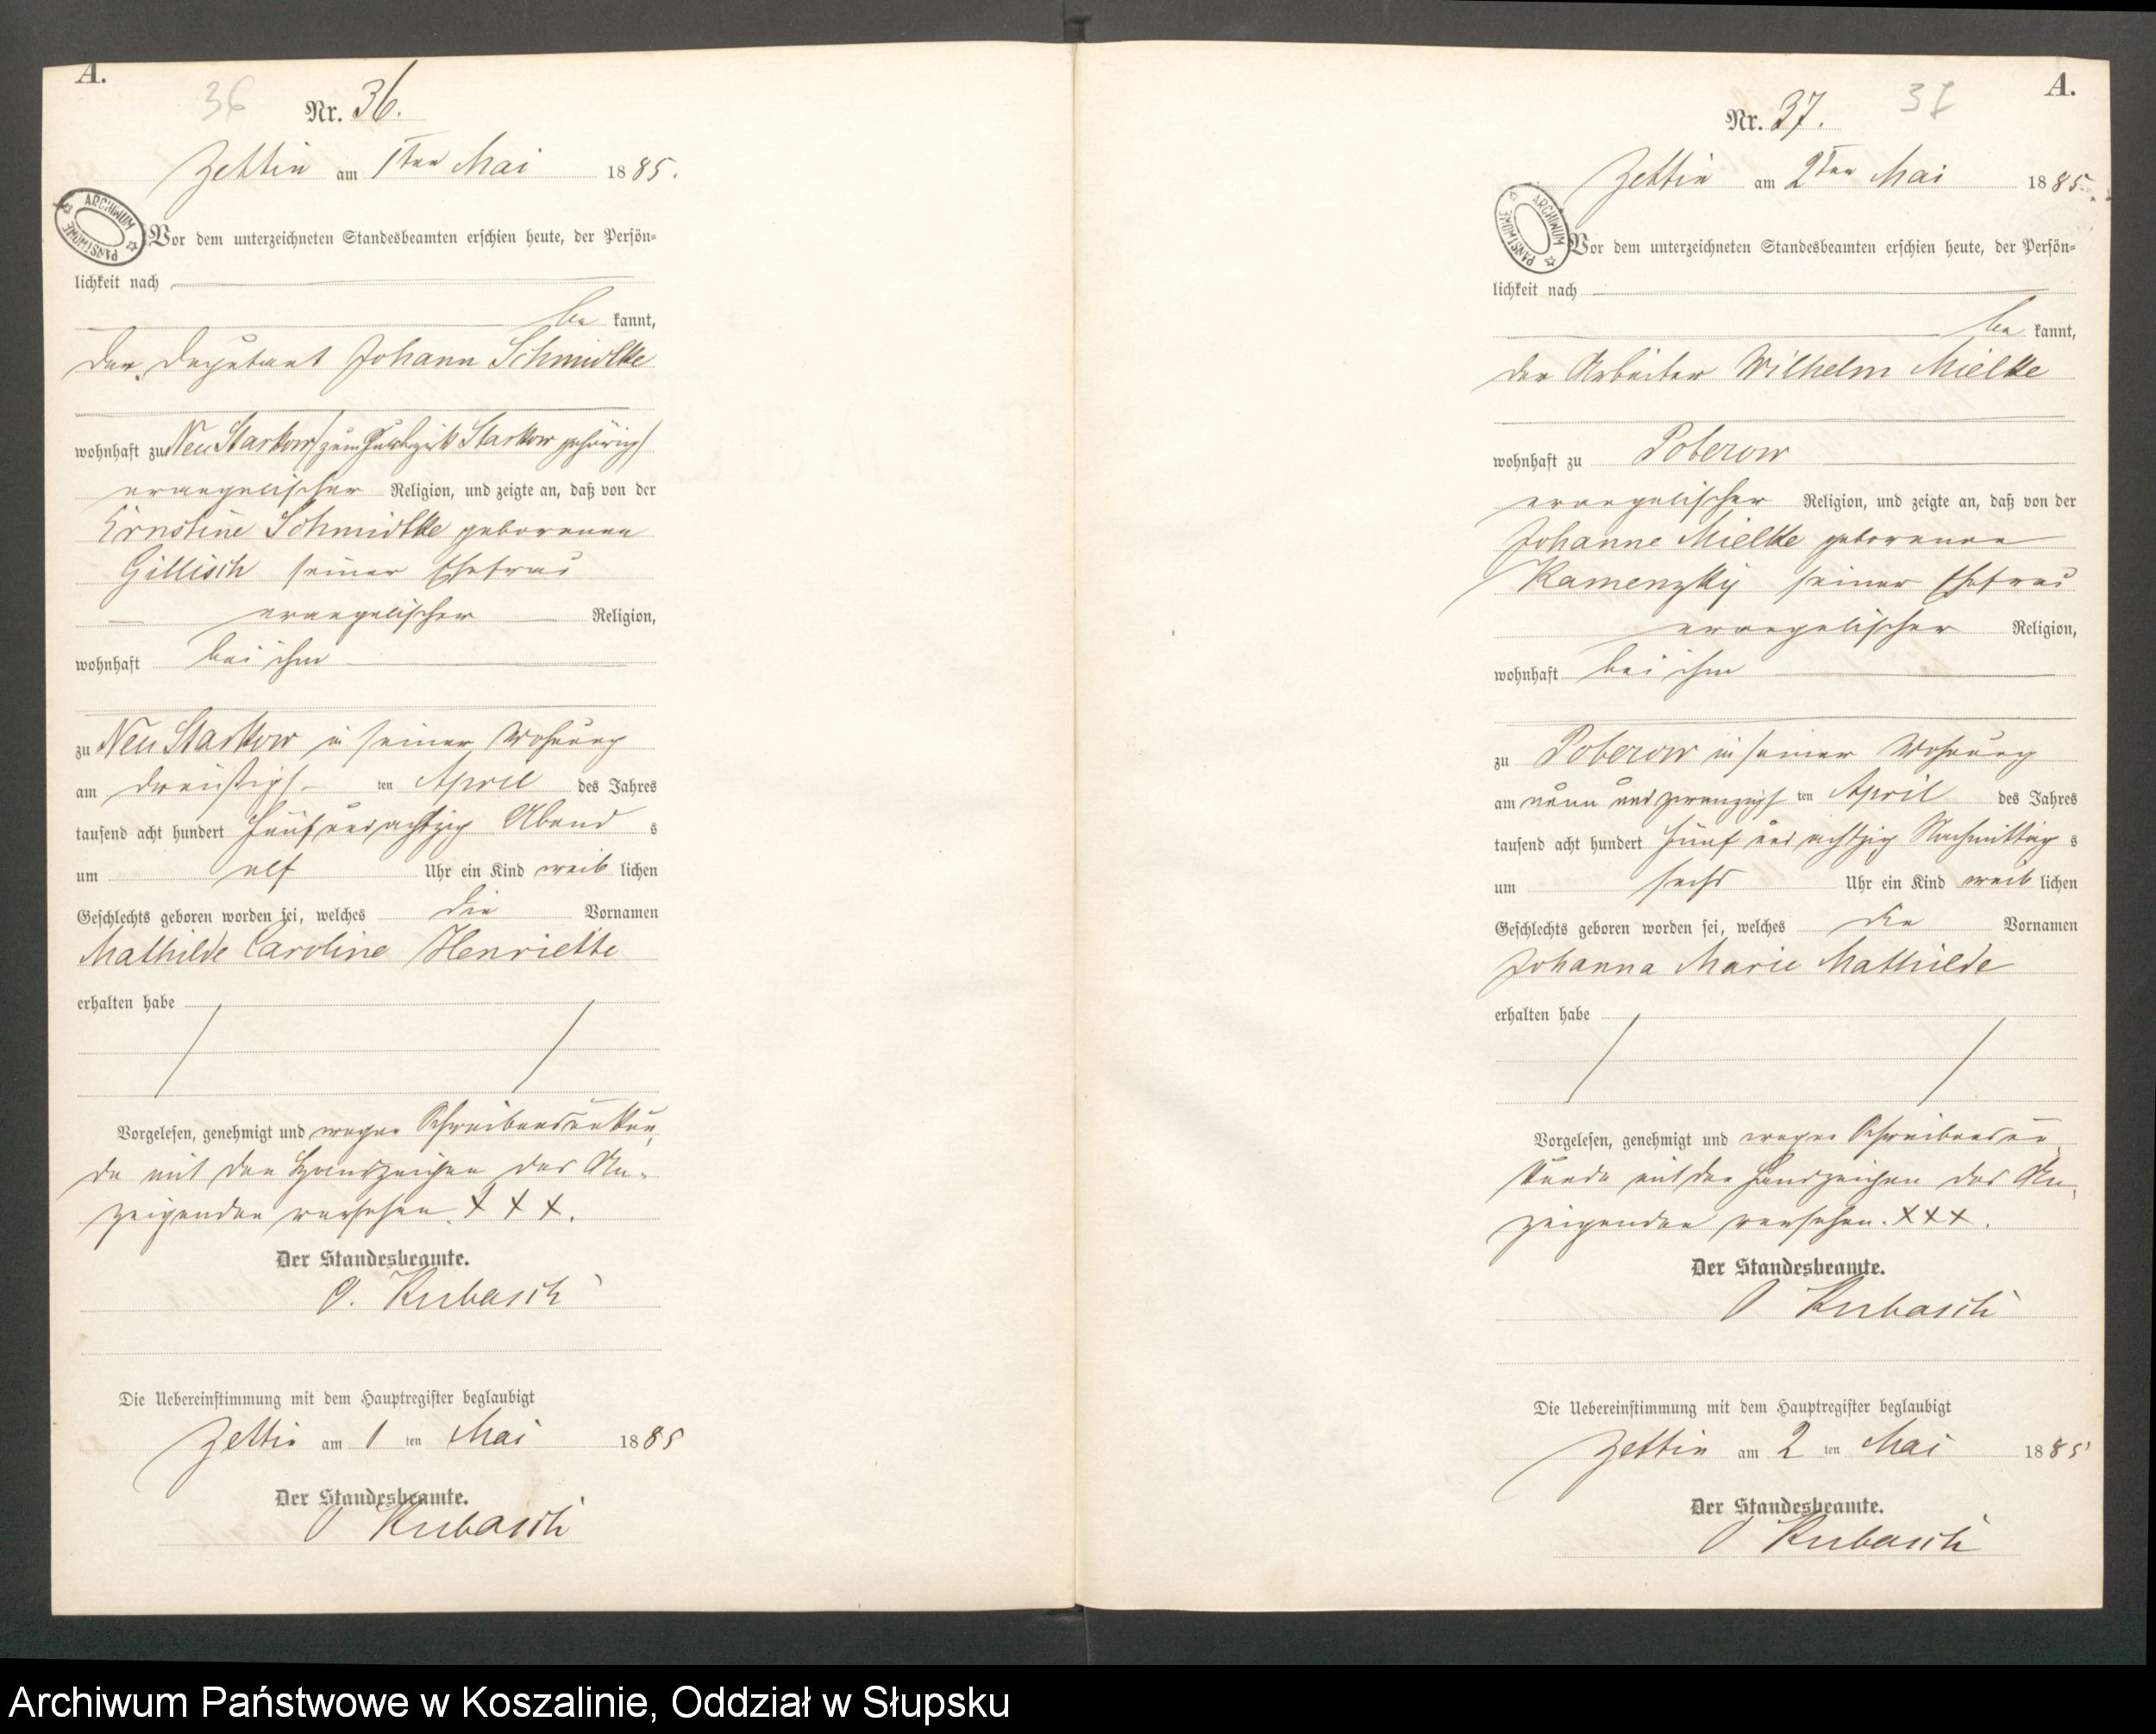 A.
36
Nr. 36.
Zettin am 1ten Mai 1885.
ARCHIWUM PAŃSTWOWE
Vor dem unterzeichneten Standesbeamten erschien heute, der Persön-
lichkeit nach
be kannt,
der Deputant Johann Schmidtke
wohnhaft zu Neu Starkow (zum Gutsbezirk Starkow gehörig)
evangelischer Religion, und zeigte an, daß von der
Ernstine Schmidtke geborenen
Gillisch seiner Ehefrau
evangelischer Religion,
wohnhaft bei ihm
zu Neu Starkow in seiner Wohnung
am dreißigs ten April des Jahres
tausend acht hundert fünf und achtzig Abend s
um elf Uhr ein Kind weib lichen
Geschlechts geboren worden sei, welches die Vornamen
Mathilde Caroline Henriette
erhalten habe
Vorgelesen, genehmigt und wegen Schreibensunkun-
de mit den Handzeichen des An-
zeigenden versehen. XXX.
Der Standesbeamte.
O. Kubasch
Die Uebereinstimmung mit dem Hauptregister beglaubigt
Zettin am 1 ten Mai 1885
Der Standesbeamte.
O Kubasch
A.
37
Nr. 37.
Zettin am 2ten Mai 1885.
ARCHIWUM PAŃSTWOWE
Vor dem unterzeichneten Standesbeamten erschien heute, der Persön-
lichkeit nach
be kannt,
der Arbeiter Wilhelm Mielke
wohnhaft zu Poberow
evangelischer Religion, und zeigte an, daß von der
Johanne Mielke geborenen
Kamenzky seiner Ehefrau
evangelischer Religion,
wohnhaft bei ihm
zu Poberow in seiner Wohnung
am neun und zwanzigs ten April des Jahres
tausend acht hundert fünf und achtzig Nachmittag s
um sechs Uhr ein Kind weib lichen
Geschlechts geboren worden sei, welches die Vornamen
Johanna Marie Mathilde
erhalten habe
Vorgelesen, genehmigt und wegen Schreibensun-
kunde mit den Handzeichen des An-
zeigenden versehen. XXX.
Der Standesbeamte.
O Kubasch
Die Uebereinstimmung mit dem Hauptregister beglaubigt
Zettin am 2 ten Mai 1885
Der Standesbeamte.
O Kubasch
Archiwum Państwowe w Koszalinie, Oddział w Słupsku